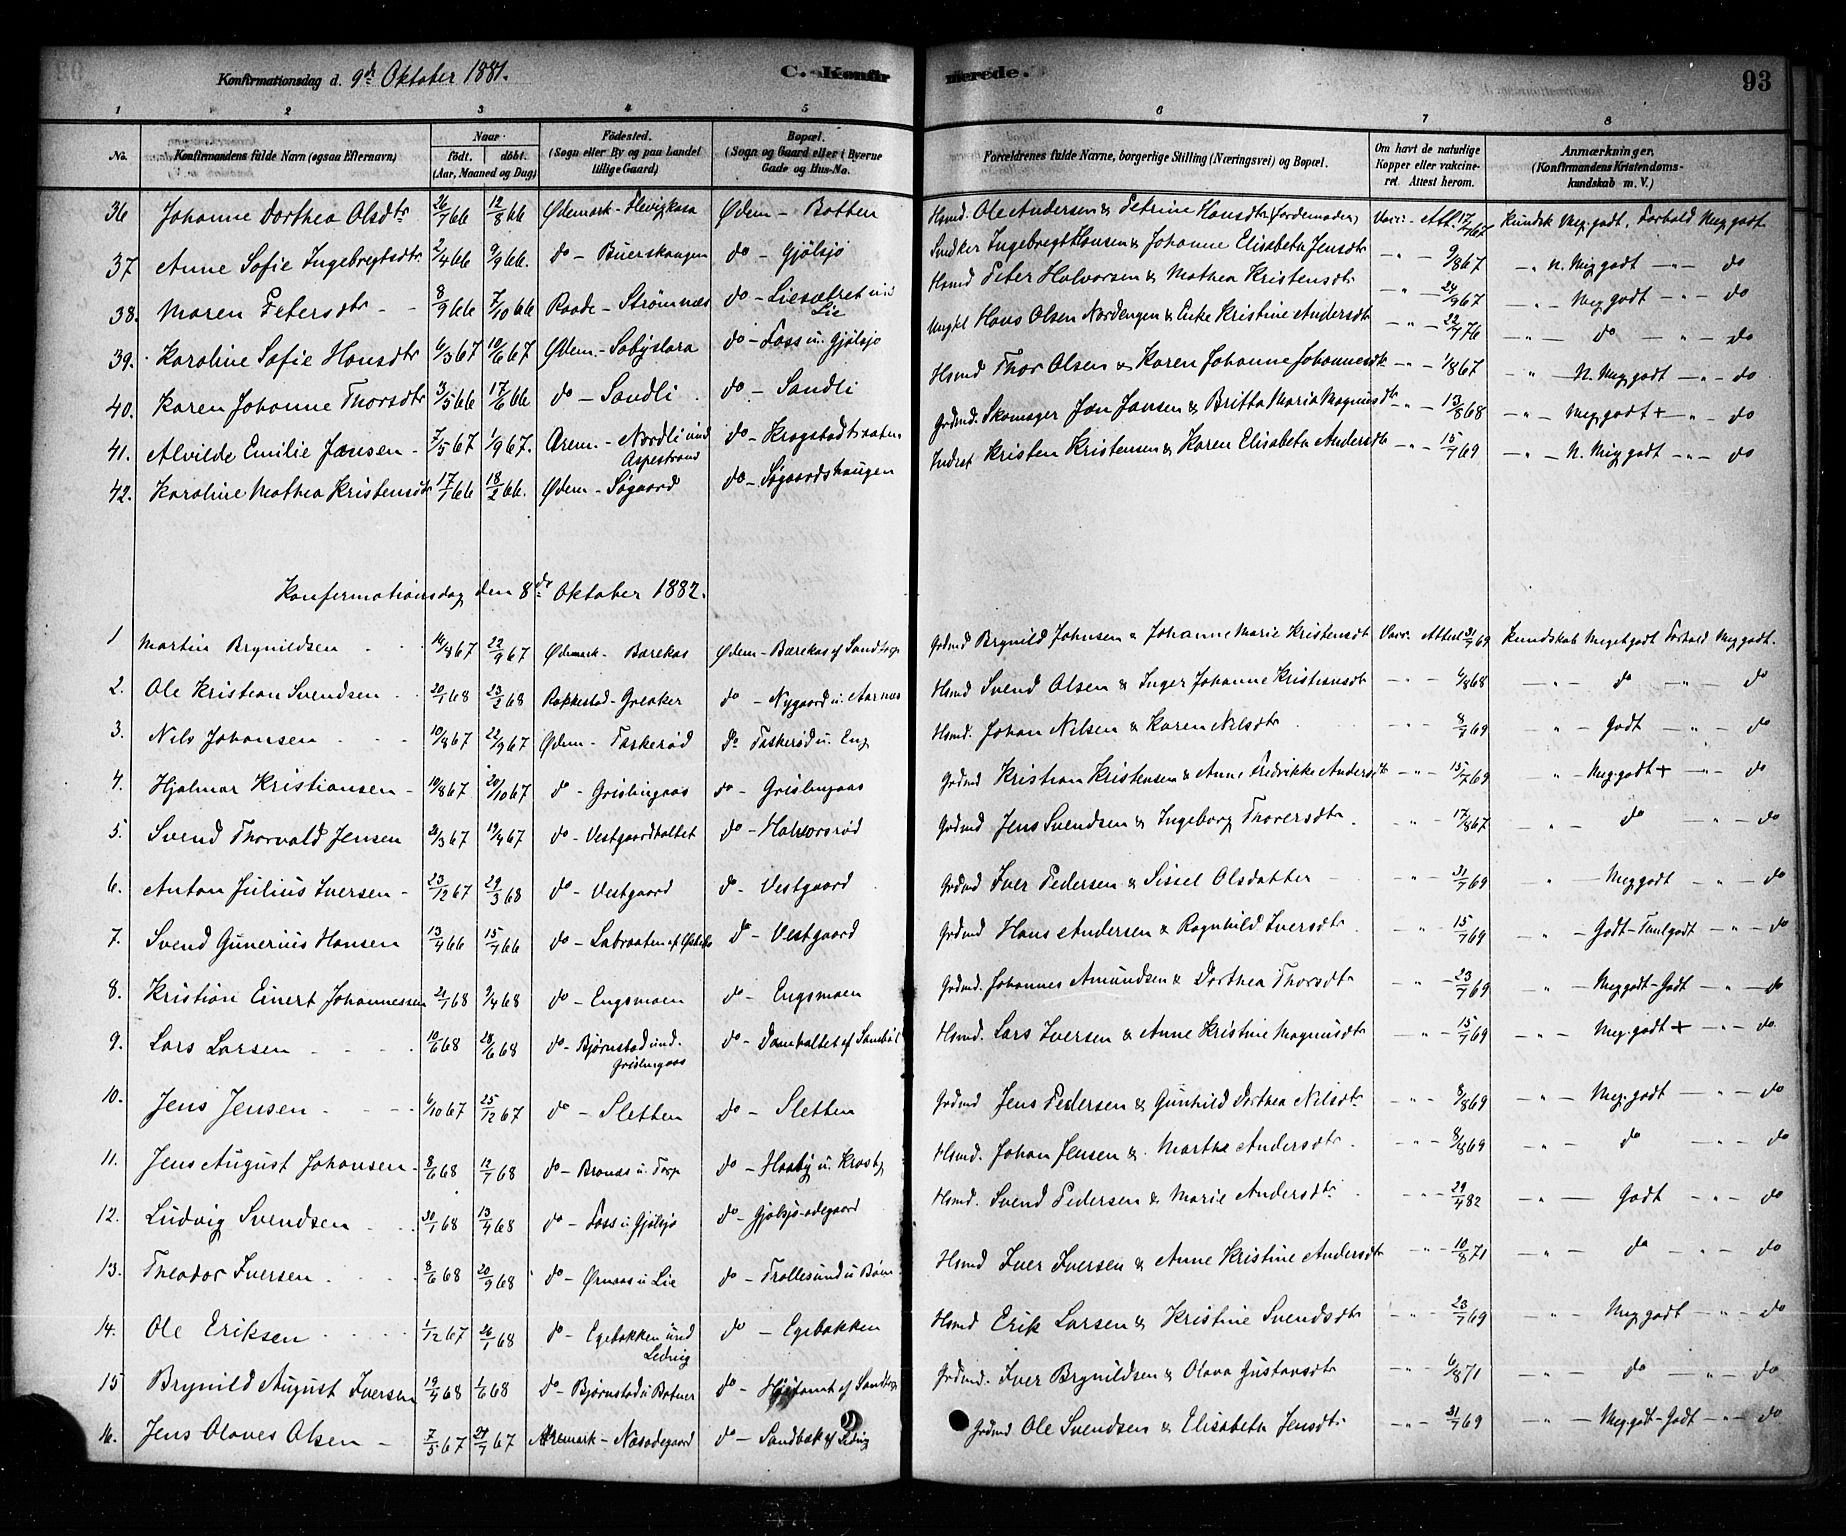 Konfirmationsdag d. 9de Oktober 1881.
C. Konfirmerede.
93
1 2 3 4 5 6 7 8
No.
Konfirmandens fulde Navn (ogsaa Efternavn)
Naar
födt. döbt.
(Aar, Maaned og Dag)
Födested.
(Sogn eller By og paa Landet tillige Gaard)
Bopæl.
(Sogn og Gaard eller i Byerne Gade og Hus-No.
Forældrenes fulde Navne, borgerlige Stilling (Næringsvei) og Bopæl.
Om havt de naturlige Kopper eller vakcineret. Attest herom.
Anmærkninger,
(Konfirmandens Kristendomskundskab m. V.)
36 Johanne Dorthea Olsdtr 26/7 66 12/8 66 Ødemark - Ødem - Botten Hsmd. Ole Andersen & Petrine Hansdtr (Fordemoder) Vacc. Att. 17/7 67 Kundsk Meg.godt. Forhold Meg godt
37. Anne Sofie Ingebregtsdtr 2/4 66 9/9 66. do - Buerskougen do - Gjølsjø Sndker Ingebregt Hansen & Johanne Elisabeth Jensdtr - " - 9/8 67 - " N. Meg godt - " - do
38. Maren Petersdtr - - 8/9 66 7/10 66 Raade - Strømnæs do - Liesætret und Lie Hsmd Peter Halvorsen & Mathea Kristensdtr - " - 24/9 67 - " - Meg godt - " - do
39. Karoline Sofie Hansdtr 6/3 67 10/6 67 Ødem. - Sobyslara do - Foss u. Gjølsjø Ungkl Hans Olsen Nordengen & Enke Kristine Andersdtr - " - 22/7 76 - " - do - " - do
40. Karen Johanne Thorsdtr 3/5 66 17/6 66 do - Sandli do - Sandli Hsmd Thor Olsen & Karen Johanne Johannesdtr - " - 1/8 67 " - N. Meg.godt - " - do
41. Alvilde Emilie Jansen - 7/5 67 1/9 67. Arem. - Nordli und Aspestrand do - Krogstadbraaten Grdmd. Skomager Jan Jansen & Britta Maria Magnusdtr - " - 13/8 68 - " - Meg.godt + - " - do
42. Karoline Mathea Kristensdtr 17/1 66 18/2 66. Ødem - Søgaard do - Søgaardshaugen Indrst Kristen Kristensen & Karen Elisabeth Andersdtr - " - 15/7 69 - " - N. Meg godt - " - do
Konfirmationsdag den 8de Oktober 1882.
1 Martin Brynildsen - - 14/8 67 22/9 67 Ødemark - Bærekas Ødem - Bærekas af Grdmd Brynild Johnsen & Johanne Marie Kristensdtr Vacc. Attest 31/7 69 Kundskab Meget godt Forhold Meg godt.
2. Ole Kristian Svendsen - - 20/1 68 23/2 68 Rakkestad - Greaker do - Nygaard u. Aarnes Hsmd Svend Olsen & Inger Johanne Kristiansdtr - " - 6/8 68 - " - do - " - do
3. Nils Johansen - - - 10/8 67 22/9 67 Ødem - Taskerød Do Taskerød u. Eng Hsmd. Johan Nilsen & Karen Nilsdtr - " - 8/7 69 - " - Godt - " - do
4. Hjalmar Kristiansen - 19/8 67 20/10 67 do - Grislingaas do - Grislingaas Grdmd Kristian Kristensen & Anne Fredrikke Andersdtr - " - 15/7 69 " - Meg.godt + - " - do
5. Svend Thorvald Jensen 21/3 67 19/4 67 do - Vestgaardholtet do - Halvorsrød Grdmd Jens Svendsen & Ingeborg Thoresdtr. - " - 17/8 67 - " - do - " - do
6. Anton Julius Iversen - 23/12 67 29/3 68 do - Vestgaard do - Vestgaard Grdmd Iver Pedersen & Sissel Olsdatter - - " - 31/7 69 " - Meg godt - " - do
7. Svend Gunerius Hansen 13/4 66 15/7 66 do - Labraaten af do - Vestgaard Grdmd Hans Andersen & Ragnhild Iversdtr - " - 15/7 69 - " - Godt - Taalgodt - " - do
8. Kristian Einert Johannessen 21/1 68 9/4 68 do - Engsmoen do - Engsmoen Grdmd. Johannes Amundsen & Dorthea Thorsdtr - " - 23/7 69 - " - Meg godt - Godt - " - do
9. Lars Larsen - - - 10/6 68 28/6 68 do - Bjørnstad und. Grislingaas do - Damholtet af Hsmd. Lars Iversen & Anne Kristine Magnusdtr - " - 15/7 69 - " - Meg. godt + - " - do
10. Jens Jensen - - - 6/10 67 25/12 67 do - Sletten do - Sletten Grdmd Jens Pedersen & Gunhild Dorthea Nilsdtr - " - 3/8 69 - " - Meg. godt - " - do
11. Jens August Johansen - 8/6 68 12/7 68 do - Bronæs u. Torp do - Haaby u. Krosby Hsmd. Johan Jensen & Martha Andersdtr. - " - 8/8 69 - " - do - " - do
12. Ludvig Svendsen - - 30/1 68 13/4 68 do - Foss u Gjølsjø do - Gjølsjø-ødegaard Hsmd. Svend Pedersen & Marie Andersdtr. - " - 29/4 82 - " - Godt - " - do
13. Theodor Iversen - - - 8/6 68 20/9 68 do - Ørnaas u Lie do - Trollesund u Hsmd Iver Iversen & Anne Kristine Andersdtr - " - 10/8 71 - " - do - " - do
14. Ole Eriksen - - - - 1/12 67 26/1 68 do - Egebakken und Ledvig do - Egebakken Hsmd Erik Larsen & Kristine Svendsdtr - " - 23/7 69 - " - Meg godt - " - do
15 Brynild August Iversen 19/4 68 1/6 68 do - Bjørnstad u Botner do - af Grdmd. Iver Brynildsen & Olava Gustavsdtr - " - 6/8 71 - " - do - " - do
16. Jens Olaves Olsen - 7/5 67 21/7 67 Aremark - Næsødegaard do - Sandbæk af Ledvig Grdmd Ole Svendsen & Elisabeth Jensdtr - " - 31/7 69 - " - Meg.godt - Godt - " - do